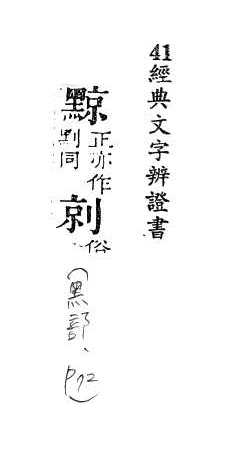 41經典文字辨證書
黥 正亦作
同
剠 俗
(黑部、P72)